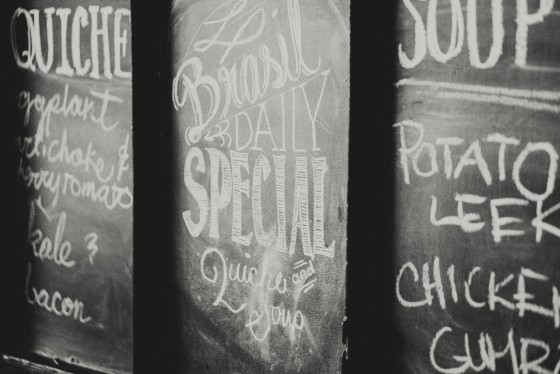 QUICHE
eggplant
artichoke &
cherry tomato
kale &
bacon
Brasil
DAILY
SPECIAL
Quiche and
Soup
SOUP
POTATO
LEEK
CHICKEN
GUMB